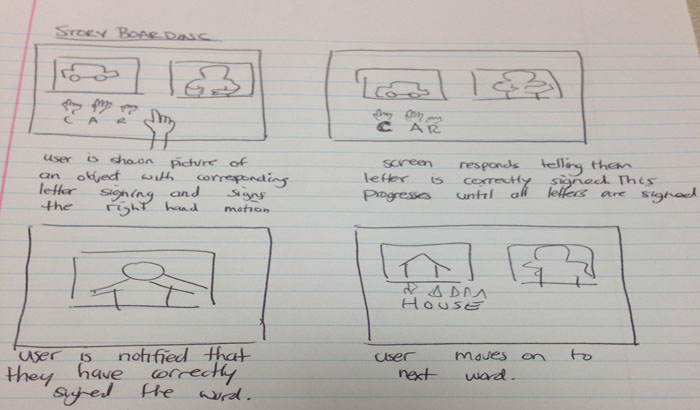 STORY BOARDING
C A R
user is shown picture of
an object with corresponding
letter signing and signs
the right hand motion
C AR
screen responds telling them
letter is correctly signed. This
Progresses until all letters are signed
user is notified that
they have correctly
signed the word.
HOUSE
user moves on to
next word.